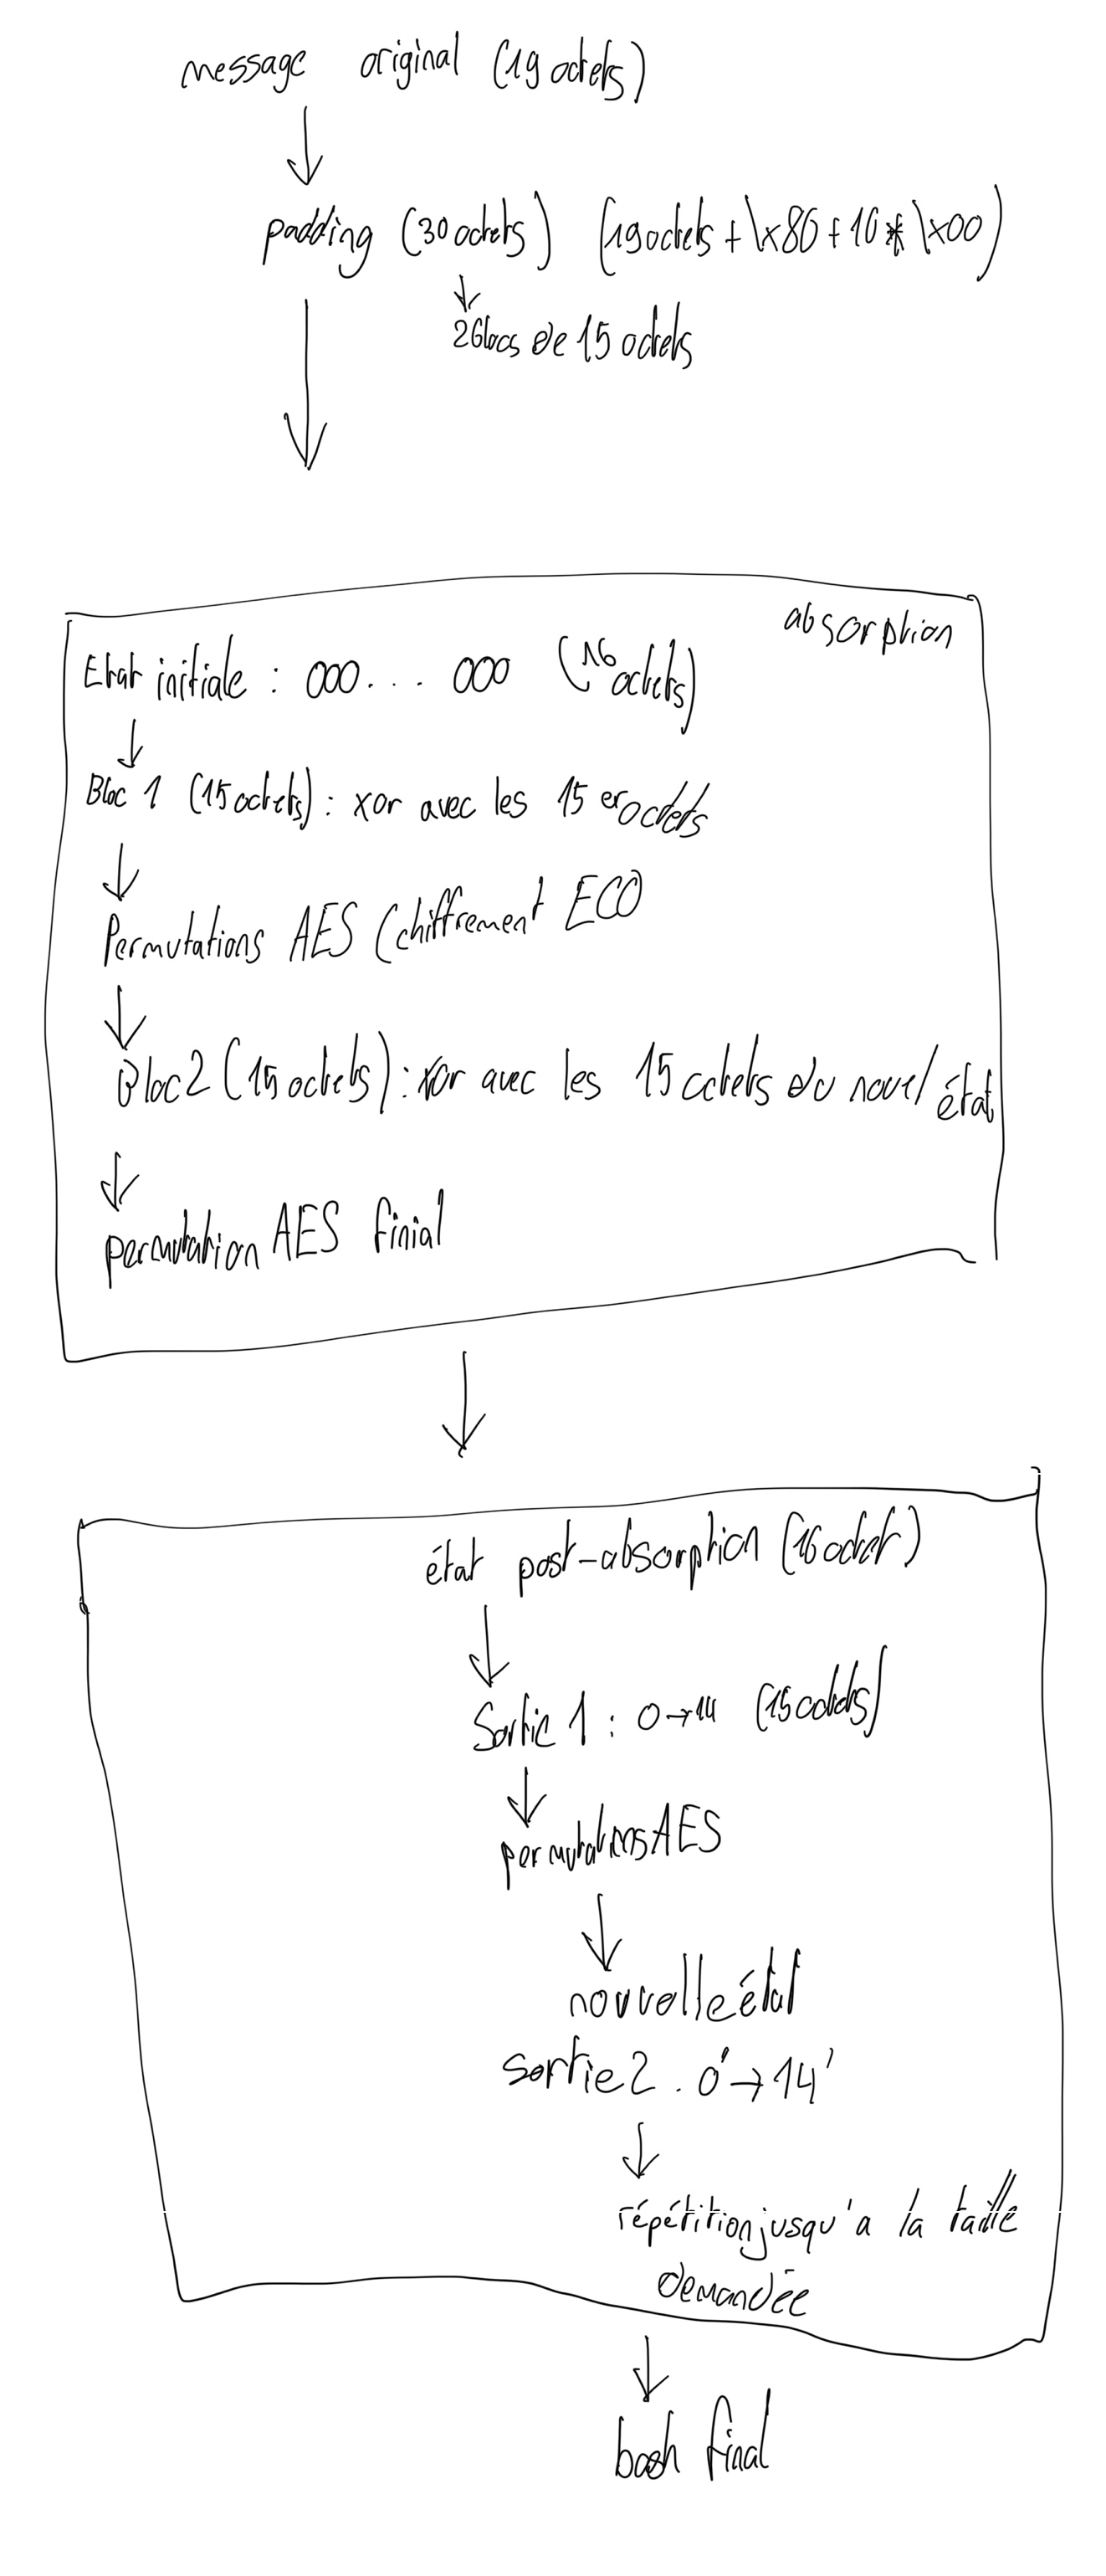 message original (19 octets)
padding (30 octets) (19 octets + \x80 + 10 * \x00)
2 blocs de 15 octets
absorption
Etat initiale : 000... 000 (16 octets)
Bloc 1 (15 octets) : xor avec les 15 er octets
Permutations AES (chiffrement ECB
Bloc 2 (15 octets) : xor avec les 15 octets du nouvel état
permutation AES finial
état post-absorption (16 octet)
Sortie 1 : 0→14 (15 octets)
permutations AES
nouvelle état
sortie 2 . 0'→14'
répétition jusqu'a la taille
demandée
hash final